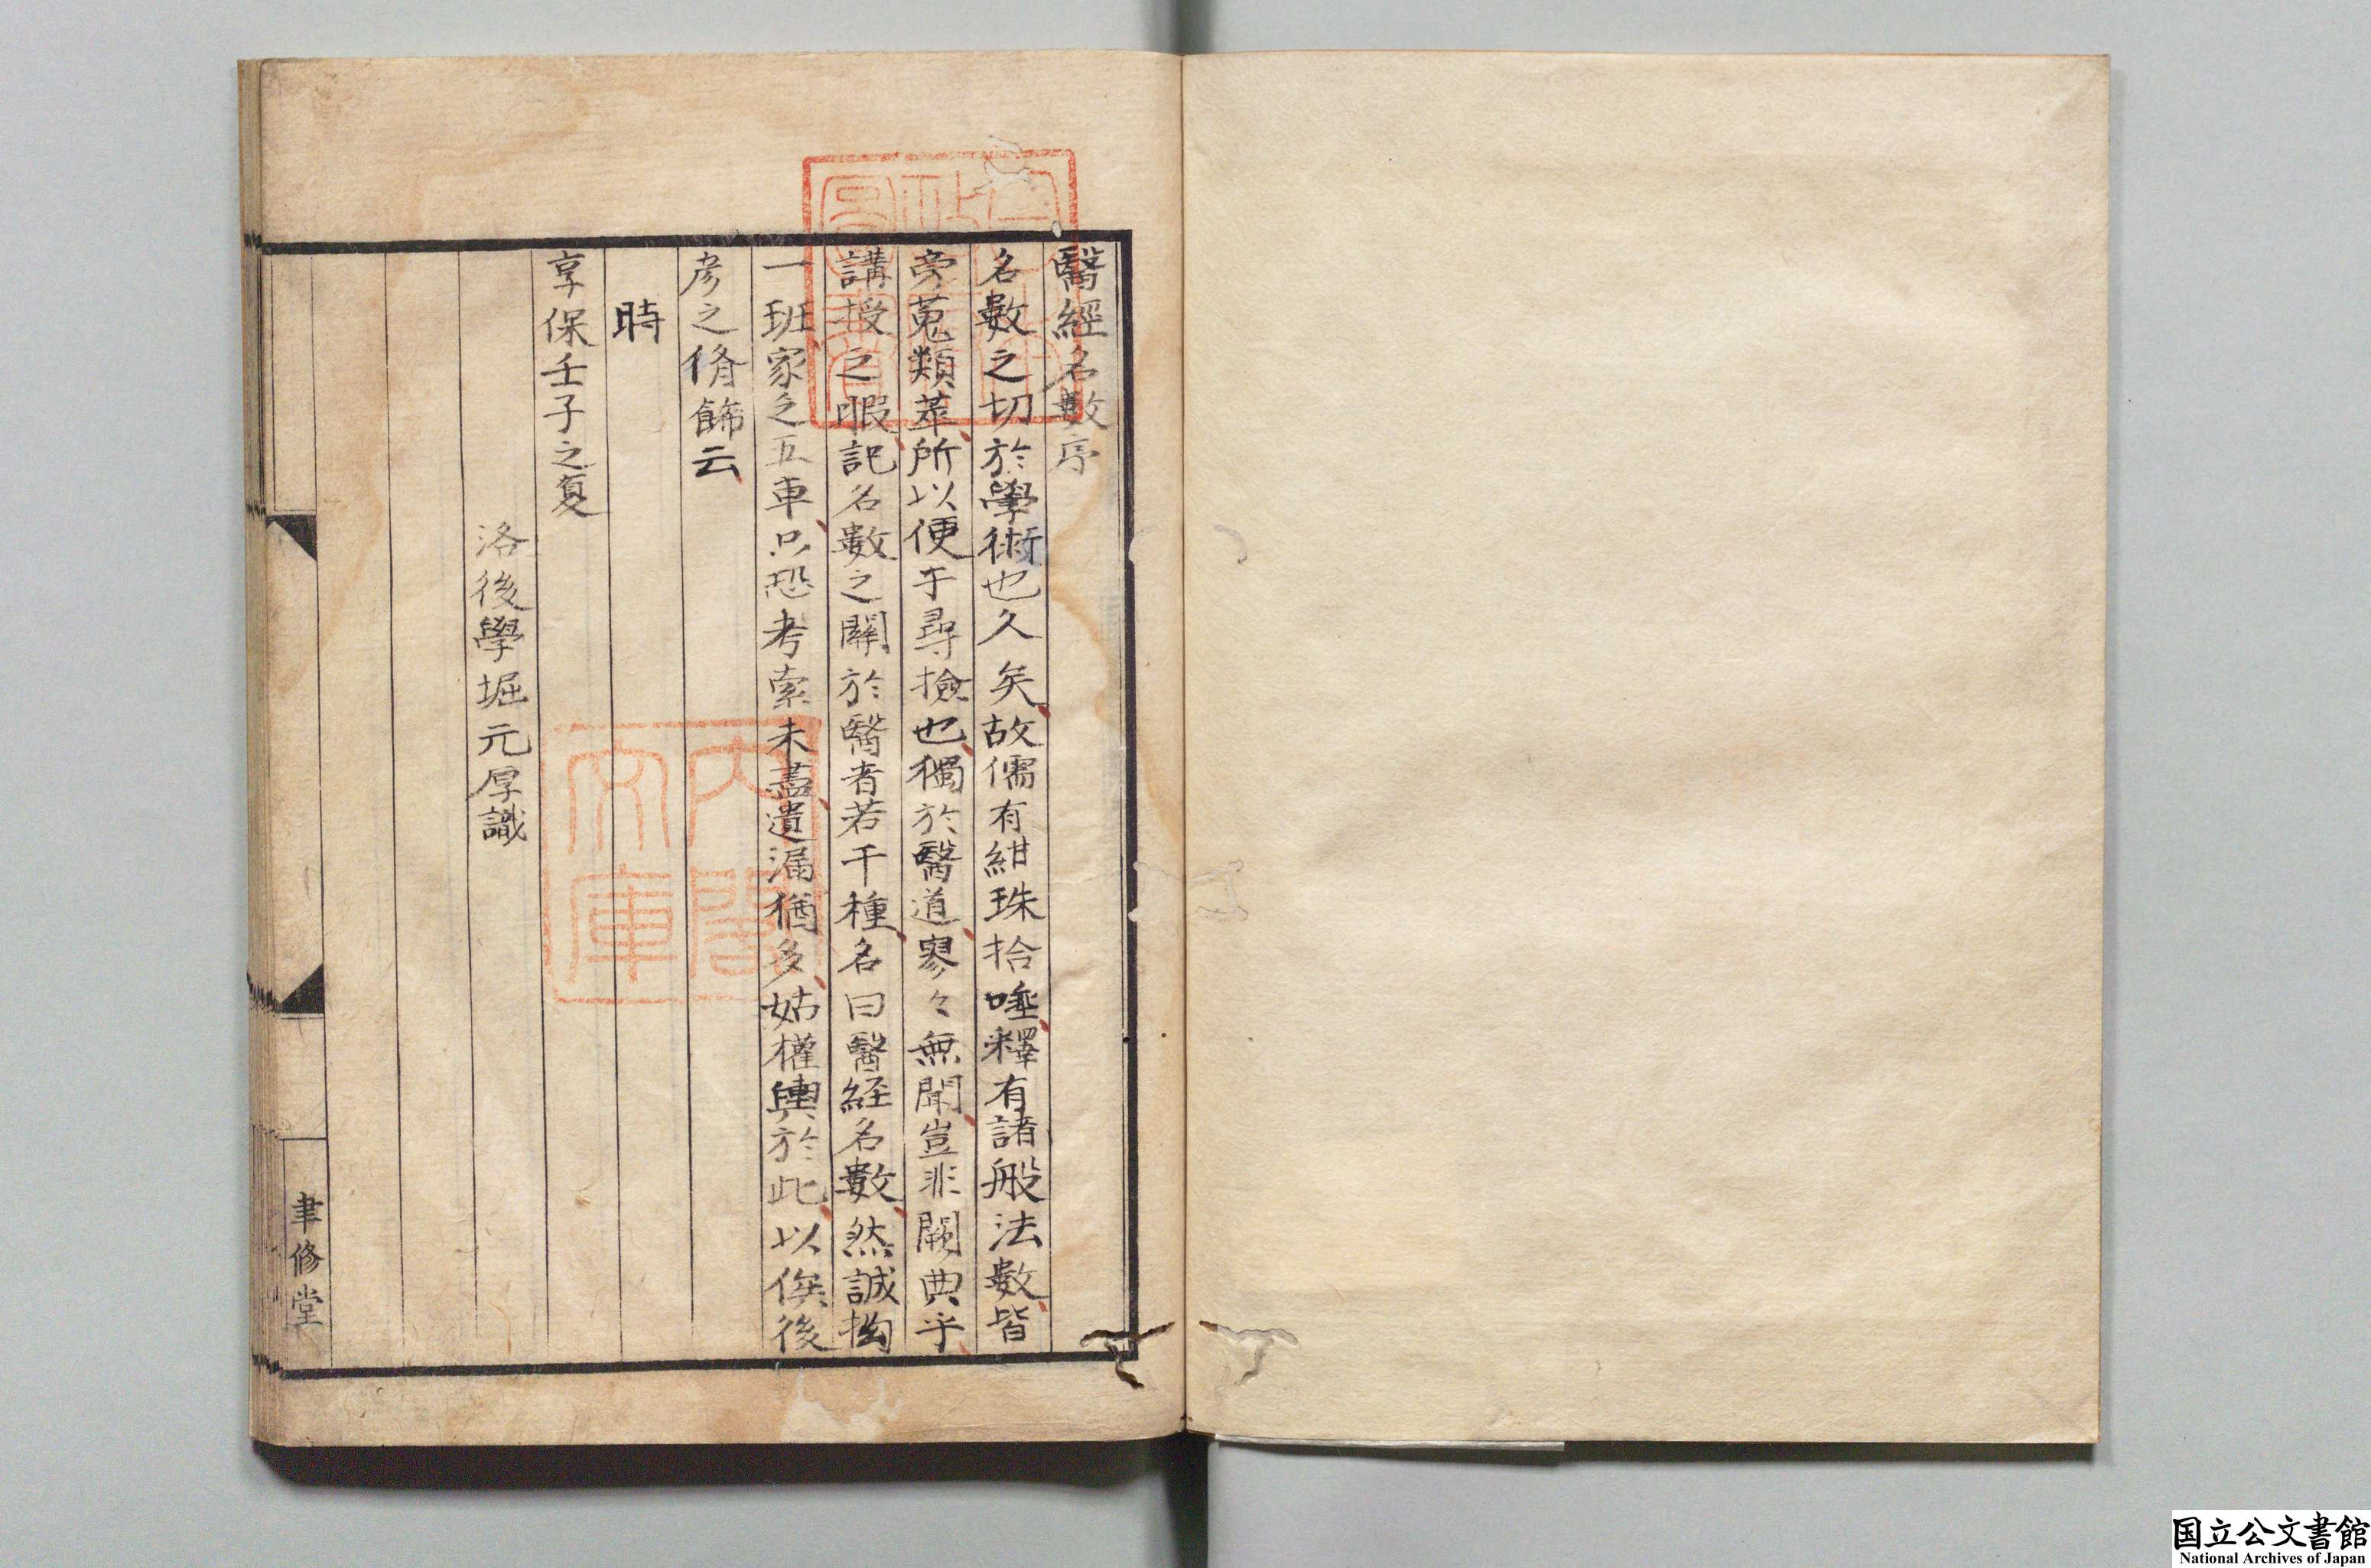 醫經名數序
名數之切於學術也久矣故儒有紺珠拾唾釋有諸般法數皆
旁蒐類萃所以便于尋撿也獨於醫道寥々無聞豈非闕典乎
講授之暇記名數之關於醫者若干種名曰醫経名數然誠抝
一班家之五車只恐考索未盡遺漏猶多姑權輿於此以俟後
彦之脩餙云
時
享保壬子之夏
洛後學堀元厚識
聿修堂
内閣文庫
国立公文書館
National Archives of Japan